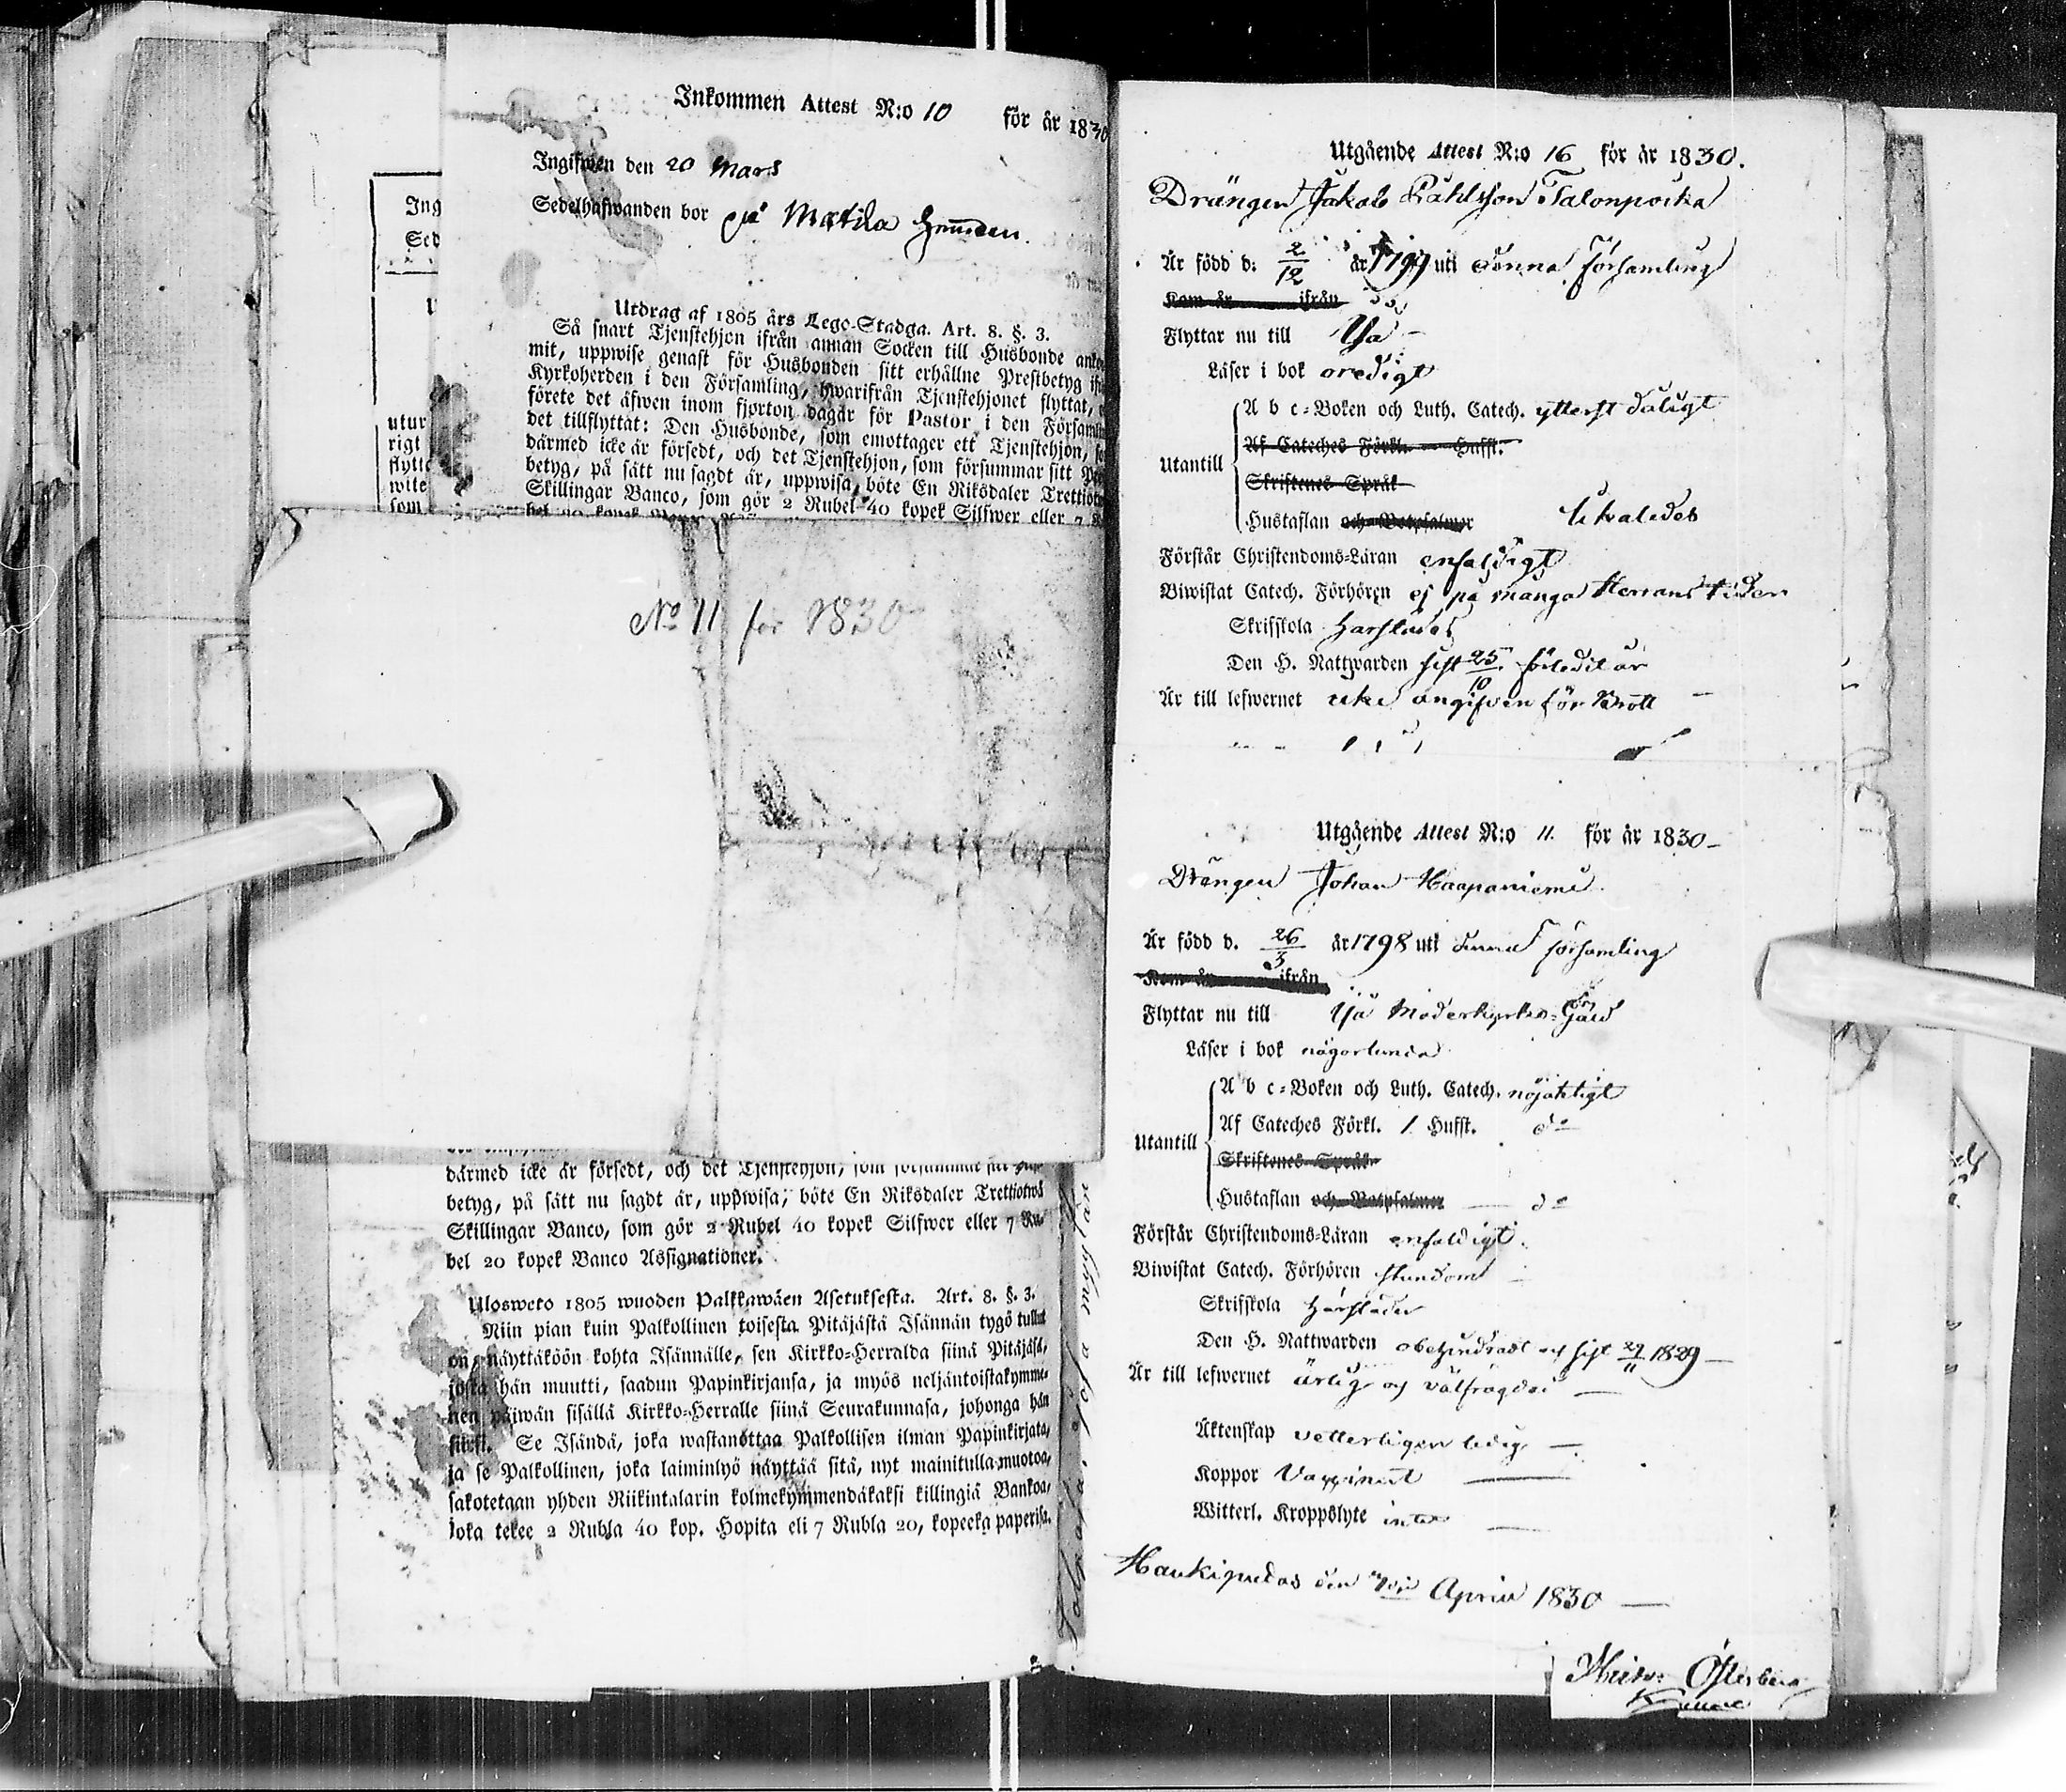 Inkommen Attest N:o 10 för år 1830
Ingifwen den 20 Mars
Sedelhafwanden bor på Matila
Utdrag af 1805 års Lego-Stadga. Art. 8. §. 3.
Så snart Tjenstehjon ifrån annan Socken till Husbonde
mit, uppwise genast för Husbonden sitt erhållne Prestbetyg
Kyrkoherden i den Församling, hwarifrån Tjenstehjonet flyttat,
förete det äfwen inom fjorton dagar för Pastor i den
det tillflyttat: Den Husbonde, som emottager ett Tjenstehjon,
därmed icke är försedt, och det Tjenstehjon, som försummar sitt
betyg, på sätt nu sagdt är, uppwisa, böte En Riksdaler
Skillingar Banco, som gör 2 Rubel 40 kopek Silfwer eller 7
Ing
Sed
utur
rigt
flytt
wite
som
No 11 för 1830
därmed icke är försedt, och det Tjenstehjon, som försummar sitt
betyg, på sätt nu sagdt är, uppwisa, böte En Riksdaler Trettiotwå
Skillingar Banco, som gör 2 Rubel 40 kopek Silfwer eller 7 Ru-
bel 20 kopek Banco Assignationer.
Ulosweto 1805 wuoden Palkkawäen Asetuksesta. Art. 8. §. 3.
Niin pian kuin Palkollinen toisesta Pitäjästä Isännän tygö tullut
on, näyttäköön kohta Isännälle, sen Kirkko-Herralda siinä Pitäjäsä,
josta hän muutti, saadun Papinkirjansa, ja myös neljäntoistakymme-
nen päiwän sisällä Kirkko-Herralle siinä Seurakunnasa, johonga hän
siirsi. Se Isändä, joka wastanottaa Palkollisen ilman Papinkirjata,
ja se Palkollinen, joka laiminlyö näyttää sitä, nyt mainitulla muotoa,
sakotetaan yhden Riikintalarin kolmekymmendäkaksi killingiä Bankoa,
joka tekee 2 Rubla 40 kop. Hopita eli 7 Rubla 20, kopecka paperisa.
Utgående Attest N:o 16 för år 1830.
Drängen Jakob Talonpoika
Är född d. 2/12 år 1799 uti denna Församling
Kom år ifrån
Flyttar nu till Ijo
Läser i bok oredigt
A b c-Boken och Luth. Catech. ytterst dåligt
Af Cateches Förkl. Hufst.
Utantill
Skriftenes Språk
Hustaflan och Botpsalmer likaledes
Förstår Christendoms-Läran enfaldigt
Biwistat Catech. Förhören ej på många Herrans tider
Skrifskola härstädes
Den H. Nattwarden sist 25/10 förledit år
Är till lefwernet icke angifven för Brott
Utgående Attest N:o 11. för år 1830
Drängen Johan Haapaniemi
Är född d. 26/3 år 1798 uti denna Församling
Kom år ifrån
Flyttar nu till Ijå Moderkyrko-
Läser i bok någorlunda
A b c-Boken och Luth. Catech. nöjaktigt
Af Cateches Förkl. 1 Hufst. do
Utantill
Skriftenes Språk
Hustaflan och Botpsalmer do
Förstår Christendoms-Läran enfaldigt.
Biwistat Catech. Förhören stundom
Skrifskola härstädes
Den H. Nattwarden obehindradt och sist 29/11 1829
Är till lefwernet ärlig och välfrägdad
Äktenskap vetterligen ledig
Koppor Vaccinerat
Witterl. Kroppslyte intet
Haukipudas den April 1830
Österberg